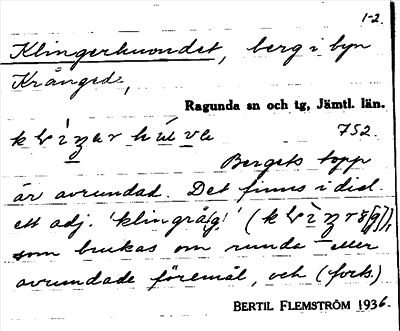 1-2.
Klingerhuvudet, berg i byn
Krångede,
Ragunda sn och tg, Jämtl. län.
752.
Bergets topp
är avrundad. Det finns i dial.
ett adj. 'klingrå(g)'
som brukas om runda eller
avrundade föremål, och (forts.)
BERTIL FLEMSTRÖM 1936.